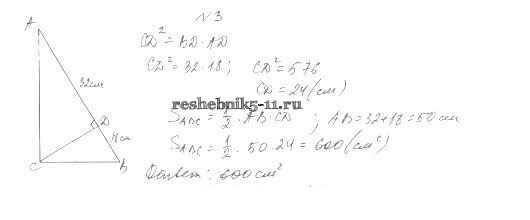 №3
A
CD² = BD · AD
CD² = 32 · 18; CD² = 576
32см
CD = 24 (см)
reshebnik5-11.ru
D
S_ABC = 1/2 · AB · CD ; AB = 32 + 18 = 50 см
S_ABC = 1/2 · 50 · 24 = 600 (см²)
C B
Ответ: 600 см²